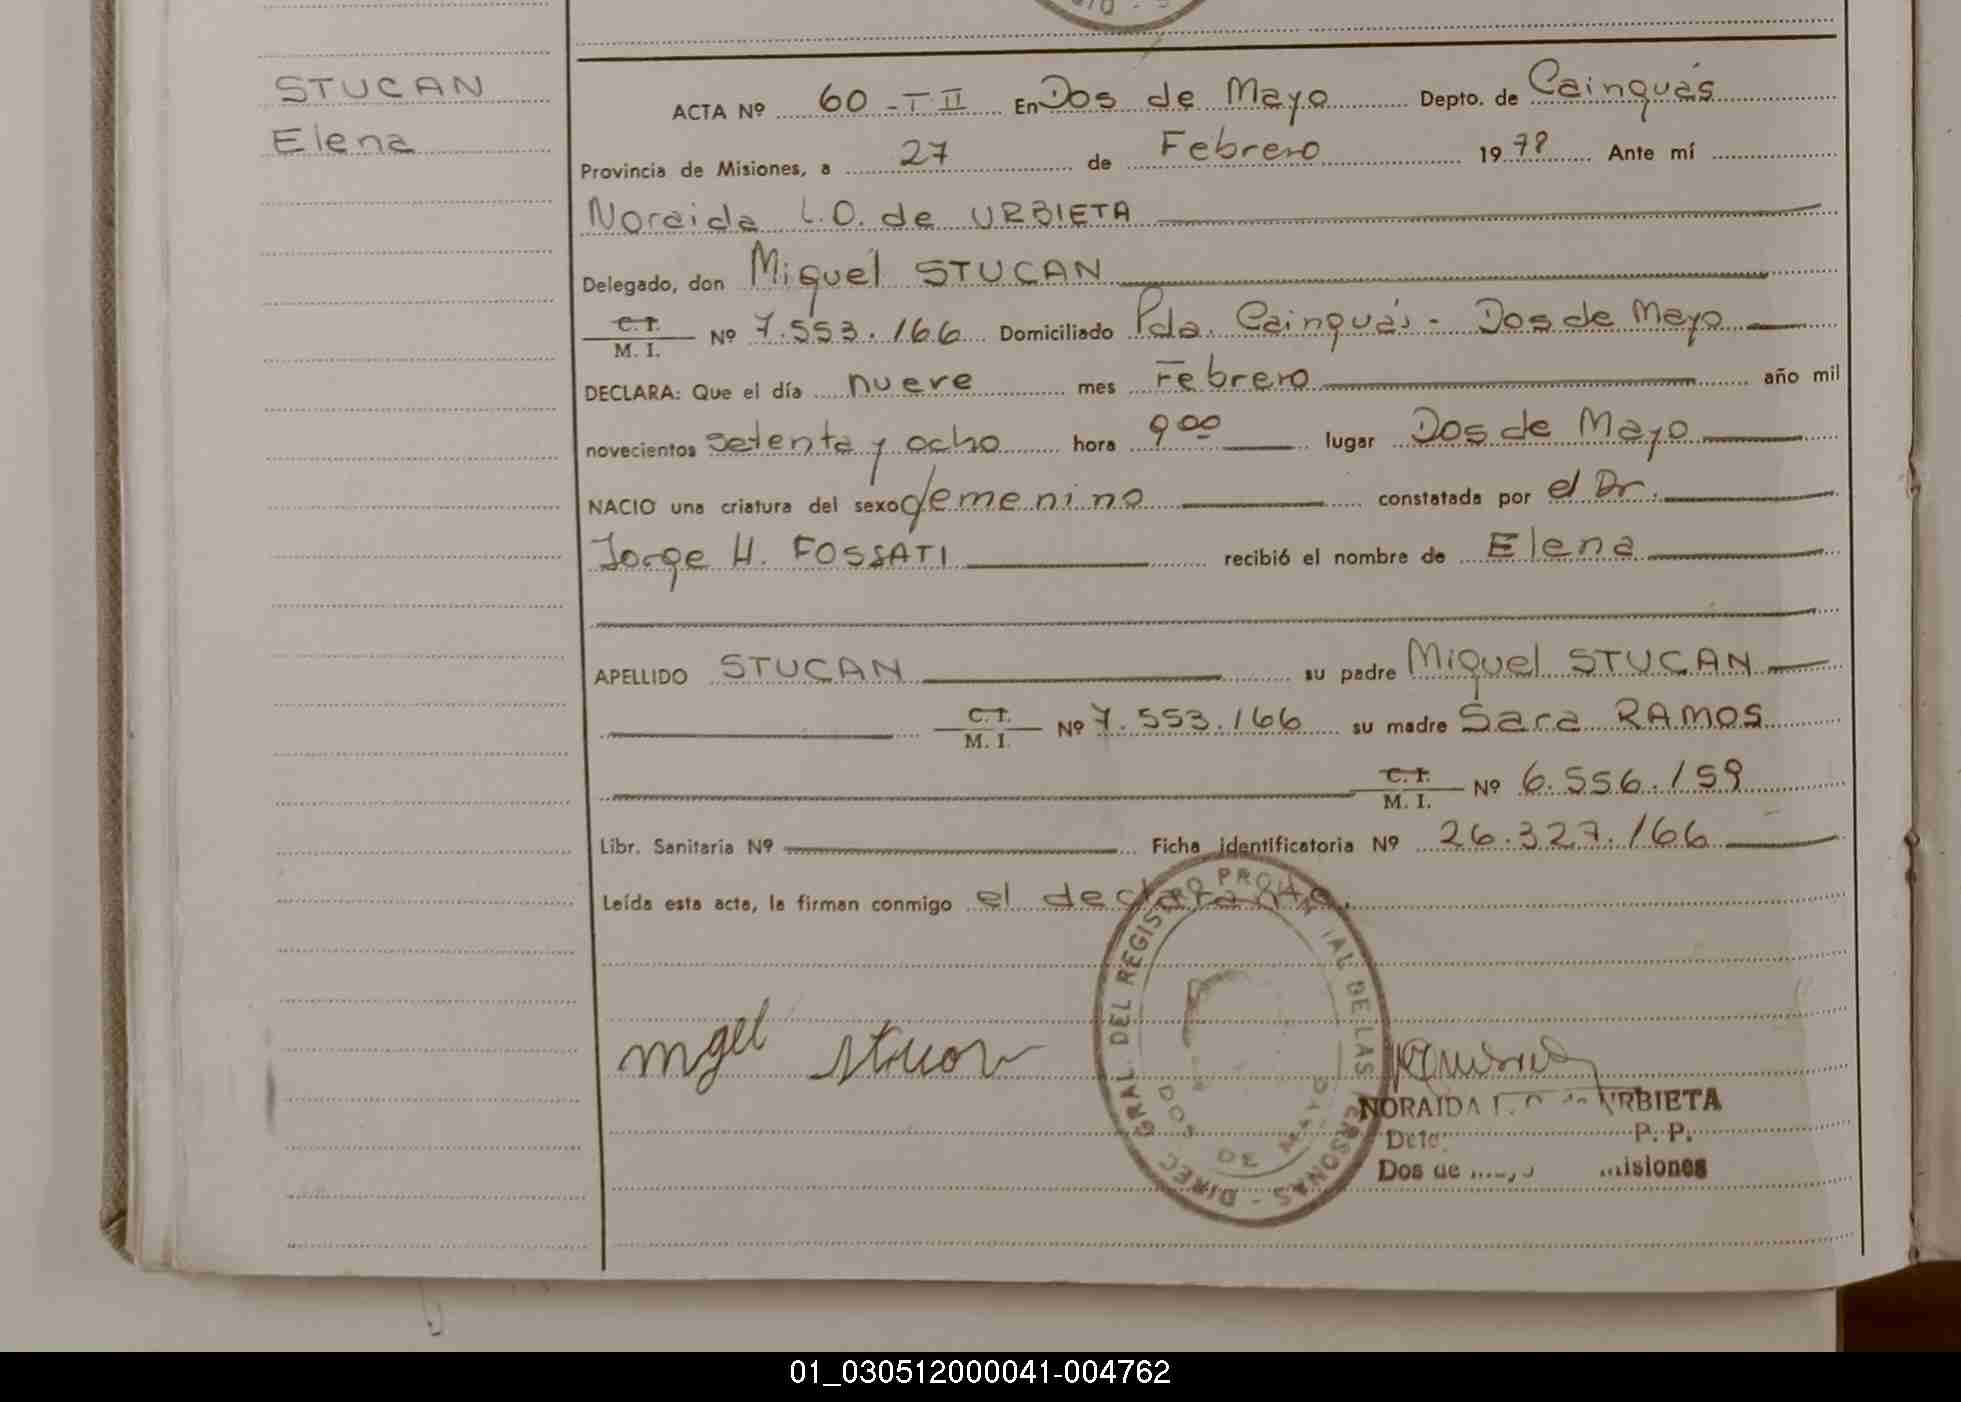 STUCAN
Elena
ACTA Nº 60 - T II En Dos de Mayo Depto. de Cainguás
Provincia de Misiones, a 27 de Febrero 1978 Ante mí
Noraida L.O. de URBIETA
Delegado, don Miguel STUCAN
C. I.
M. I. Nº 7.553.166 Domiciliado Pda. Cainguás - Dos de Mayo
DECLARA: Que el día nueve mes Febrero año mil
novecientos setenta y ocho hora 9 00 lugar Dos de Mayo
NACIO una criatura del sexo femenino constatada por el Dr.
Jorge H. FOSSATI recibió el nombre de Elena
APELLIDO STUCAN su padre Miguel STUCAN
C. I.
M. I. Nº 7.553.166 su madre Sara RAMOS
C. I.
M. I. Nº 6.556.159
Libr. Sanitaria Nº Ficha identificatoria Nº 26.327.166
Leída esta acta, la firman conmigo el declarante.
DIREC GRAL DEL REGISTRO PROVINCIAL DE LAS PERSONAS -
DOS DE MAYO
NORAIDA L. O. de URBIETA
P. P.
Dos de Mayo Misiones
01_030512000041-004762